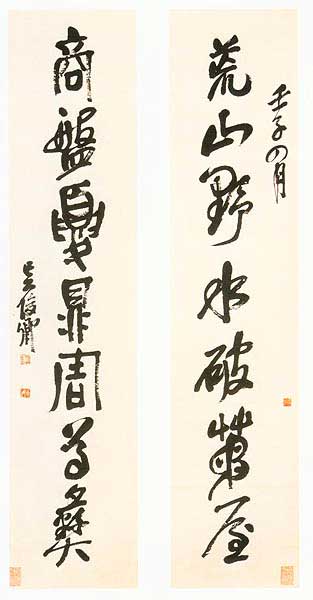 壬子四月
荒山野水破茅屋
商盤夏鼎周尊彝
吳俊卿